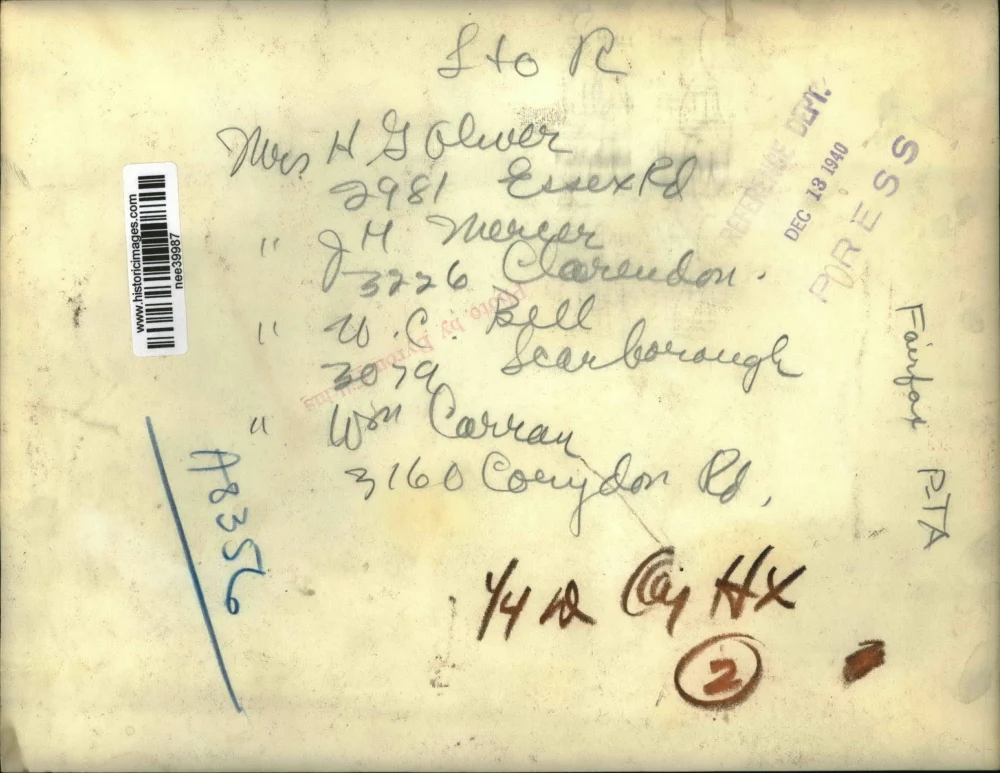 L to R
Mrs H G Oliver
2981 Essex Rd
" J H Mercer
3226 Clarendon.
" W. C. Bell
3079 Scarborough
" Wm Carran
3160 Corydon Rd.
REFERENCE DEPT.
DEC 13 1940
PRESS
Fairfax P-TA
www.historicimages.com
nee39987
Photo by Byron
A8356
1/4 HX
2